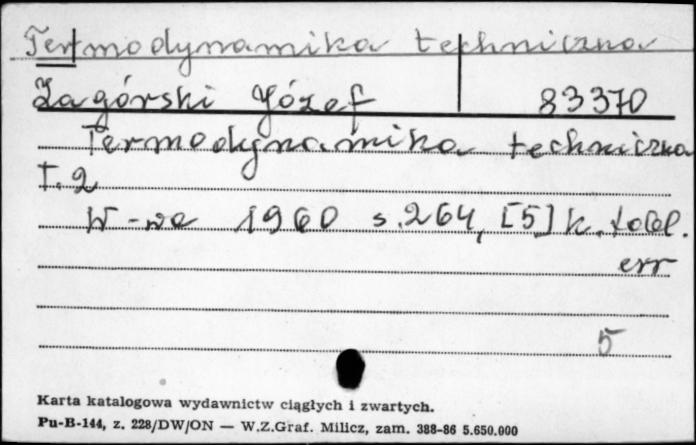 Termodynamika techniczna
Zagórski Józef 83370
Termodynamika techniczna
T. 2
W-wa 1960 s. 264, [5] k. tabl.
err
5
Karta katalogowa wydawnictw ciągłych i zwartych.
Pu-B-144, z. 228/DW/ON — W.Z.Graf. Milicz, zam. 388-86 5.650.000